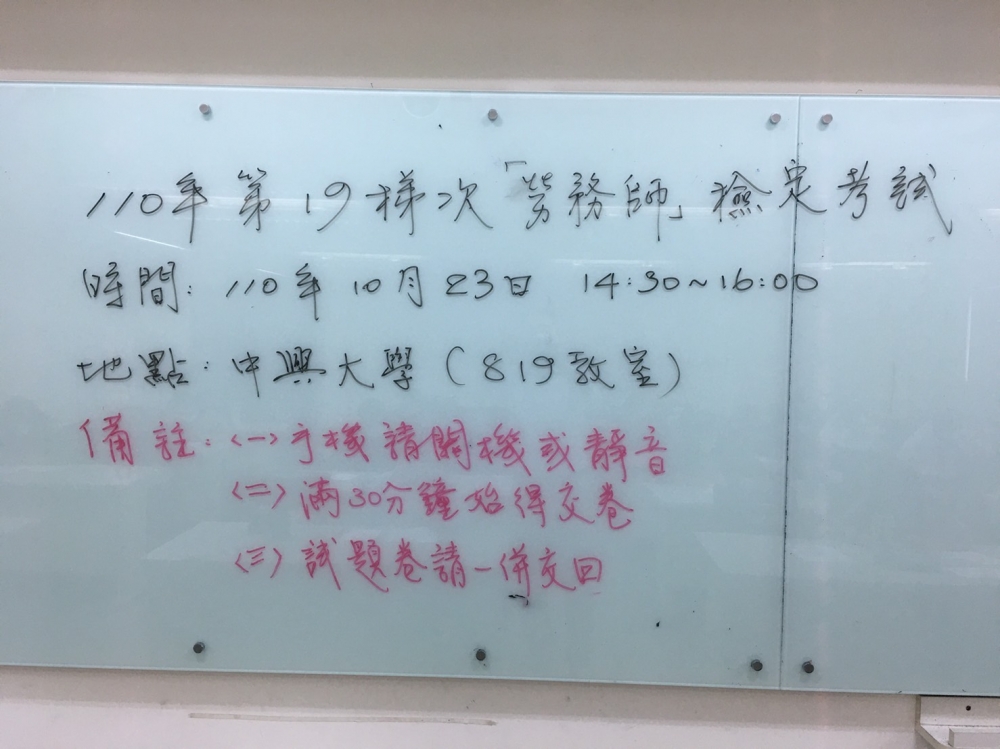 110年第19梯次「勞務師」檢定考試
時間：110年10月23日 14:30~16:00
地點：中興大學(819教室)
備註：<一>手機請關機或靜音
<二>滿30分鐘始得交卷
<三>試題卷請一併交回